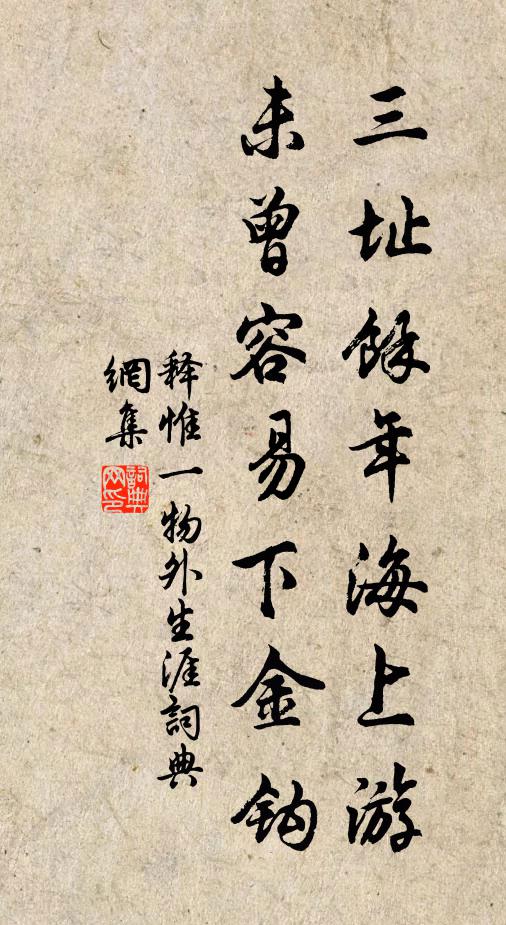 三址餘年海上游
未曾容易下金鈎
释惟一物外生涯詞典
網集
詞典
网印